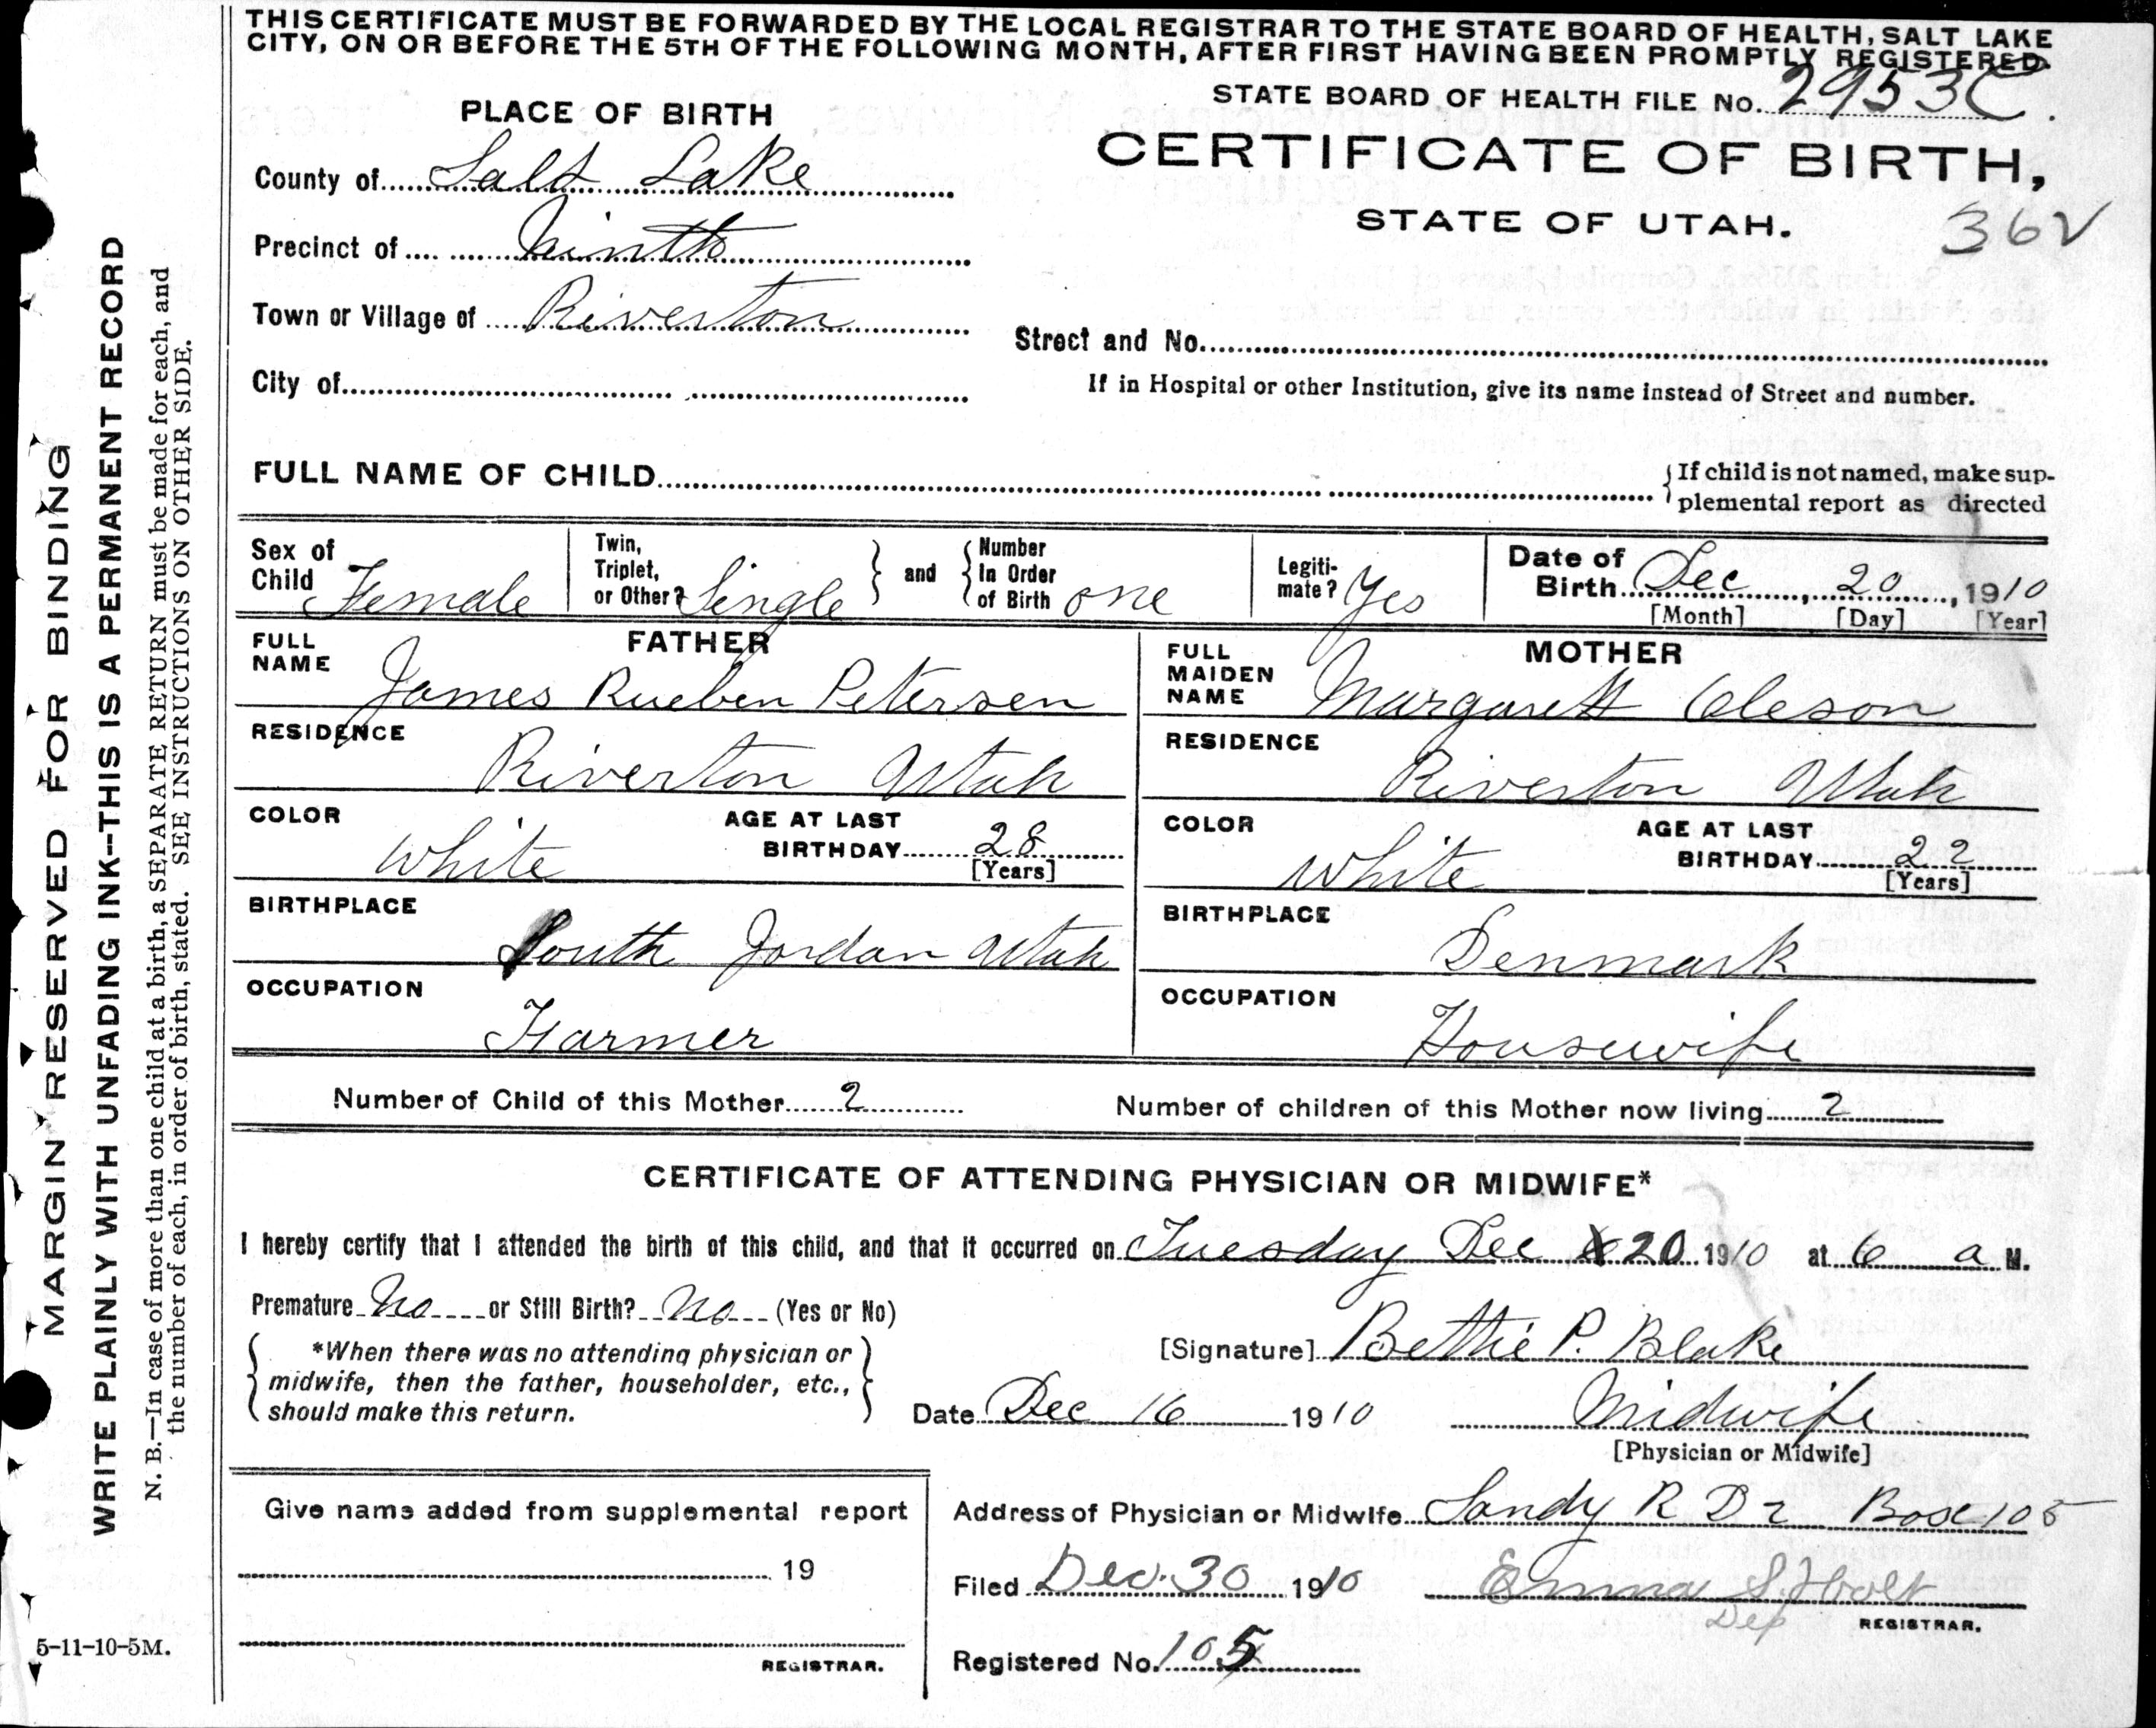 THIS CERTIFICATE MUST BE FORWARDED BY THE LOCAL REGISTRAR TO THE STATE BOARD OF HEALTH, SALT LAKE
CITY, ON OR BEFORE THE 5TH OF THE FOLLOWING MONTH, AFTER FIRST HAVING BEEN PROMPTLY REGISTERED.
STATE BOARD OF HEALTH FILE No. 2953C.
PLACE OF BIRTH
CERTIFICATE OF BIRTH,
STATE OF UTAH.
36V
County of Salt Lake
Precinct of Ninth
Town or Village of Riverton
Street and No.
City of
If in Hospital or other Institution, give its name instead of Street and number.
FULL NAME OF CHILD
{If child is not named, make sup-
plemental report as directed
Sex of Child Female
Twin, Triplet, or Other? Single
and
Number In Order of Birth one
Legiti-mate? Yes
Date of Birth Dec, 20, 1910
[Month] [Day] [Year]
FATHER
FULL NAME James Rueben Petersen
RESIDENCE
Riverton Utah
COLOR White
AGE AT LAST BIRTHDAY 28
[Years]
BIRTHPLACE
South Jordan Utah
OCCUPATION
Farmer
MOTHER
FULL MAIDEN NAME Margarett Oleson
RESIDENCE
Riverton Utah
COLOR White
AGE AT LAST BIRTHDAY 22
[Years]
BIRTHPLACE
Denmark
OCCUPATION
Housewife
Number of Child of this Mother 2
Number of children of this Mother now living 2
CERTIFICATE OF ATTENDING PHYSICIAN OR MIDWIFE*
I hereby certify that I attended the birth of this child, and that it occurred on Tuesday Dec 20 1910 at 6 a M.
Premature No or Still Birth? No (Yes or No)
*When there was no attending physician or
midwife, then the father, householder, etc.,
should make this return.
[Signature] Bettie P. Blake
Date Dec 16 1910
Midwife
[Physician or Midwife]
Give name added from supplemental report
19
REGISTRAR.
Address of Physician or Midwife Sandy R D 2 Box 105
Filed Dec. 30 1910
Emma S. Holt
Dep
REGISTRAR.
Registered No. 105
5-11-10-5M.
MARGIN RESERVED FOR BINDING
WRITE PLAINLY WITH UNFADING INK--THIS IS A PERMANENT RECORD
N. B.—In case of more than one child at a birth, a SEPARATE RETURN must be made for each, and
the number of each, in order of birth, stated. SEE INSTRUCTIONS ON OTHER SIDE.